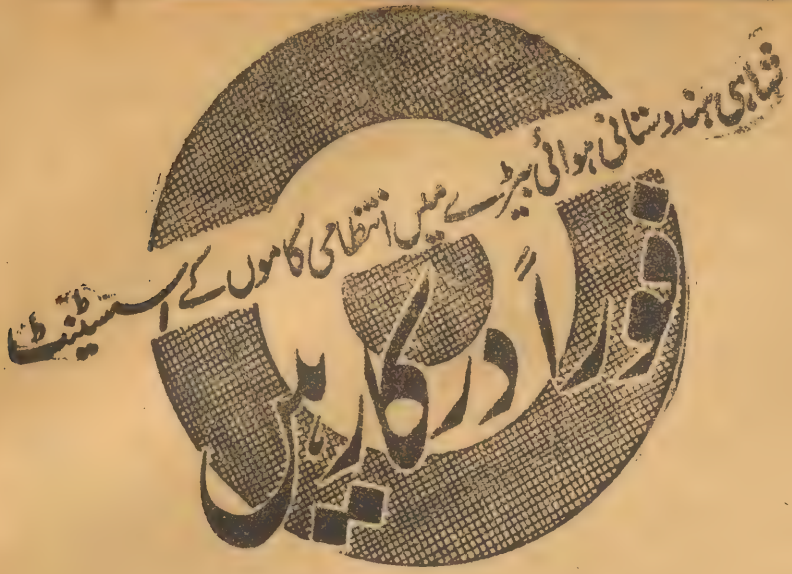 شاہی ہندوستانی ہوائی بیڑے میں انتظامی کاموں کے اسسٹنٹ
فوراً درکار ہیں